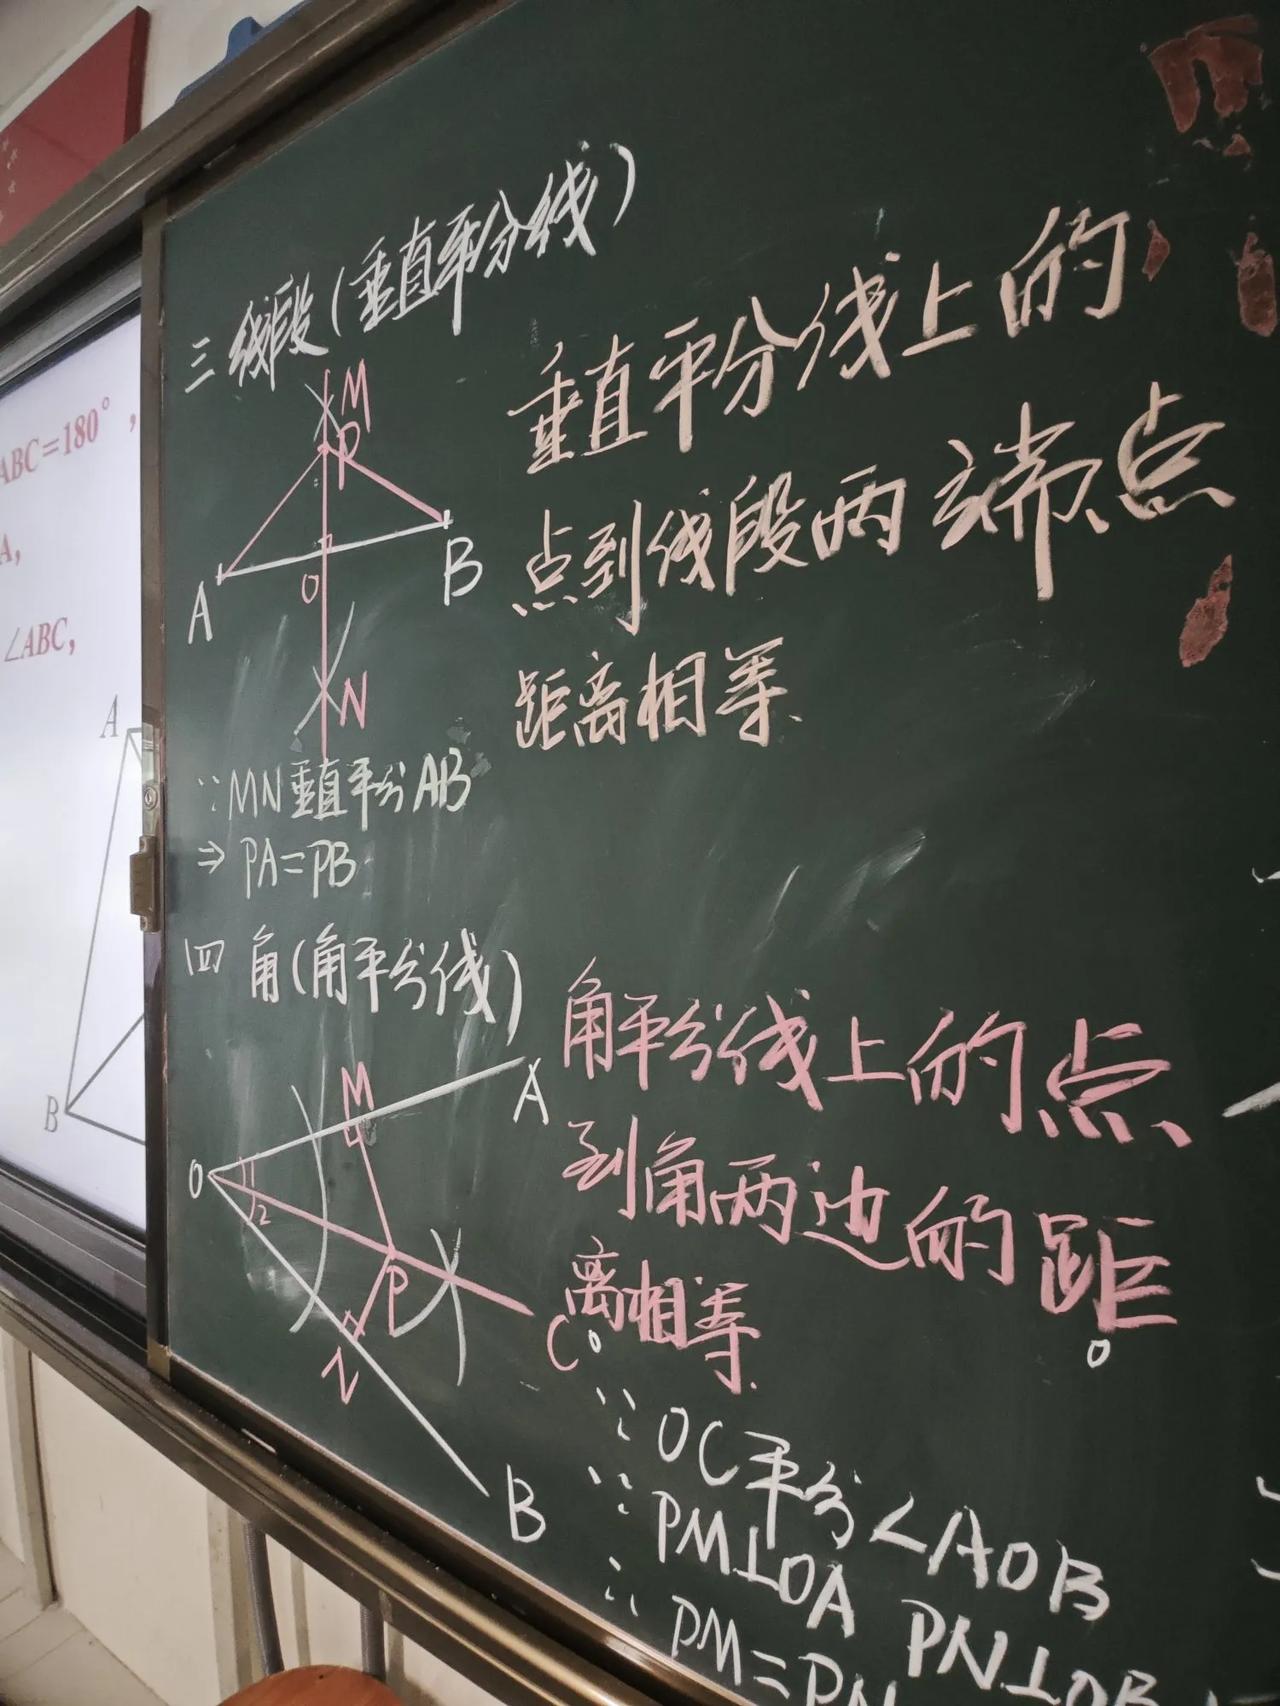 ABC=180°，
A，
∠ABC，
A
B
三 线段（垂直平分线）
M
P
A
O
B
N
垂直平分线上的
点到线段两端点
距离相等.
∵MN垂直平分AB
⇒ PA=PB
四 角(角平分线)
M
A
O
1
2
P
C
N
B
角平分线上的点
到角两边的距
离相等.
∵ OC平分∠AOB
∵ PM⊥OA PN⊥OB
∴ PM=PN